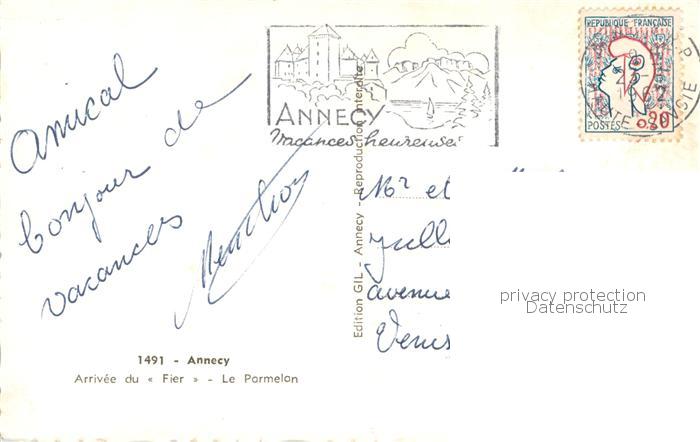 Amical
bonjour de
vacances
1491 - Annecy
Arrivée du « Fier » - Le Parmelan
ANNECY
Vacances heureuses
Edition GIL - Annecy - Reproduction interdite
REPUBLIQUE FRANÇAISE
0.20
POSTES
HAUTE-SAVOIE
Mr et
avenue
privacy protection
Datenschutz